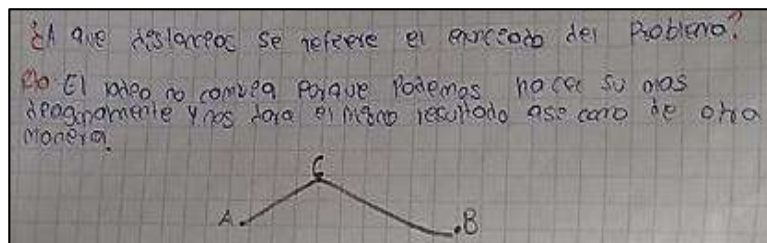 ¿A que desfarcos se refeere el enucedo del Problema?
R/o El rodeo no combea Porque Podemos hacer su mas
deagonamente y nos dara el mismo resultado ase como de otra
Manera.
C
A
B